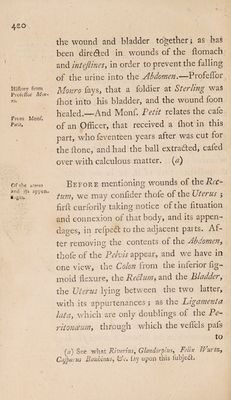 420
the wound and bladder together; as has
been directed in wounds of the stomach
and intestines, in order to prevent the falling
of the urine into the Abdomen.—Professor
History from
Professor Mon-
ro.
Monro says, that a soldier at Sterling was
shot into his bladder, and the wound soon
healed.—And Mons. Petit relates the case
From Mons.
Petit.
of an Officer, that received a shot in this
part, who seventeen years after was cut for
the stone, and had the ball extracted, cased
over with calculous matter. (a)
Of the uterus
and its appen-
dages.
Before mentioning wounds of the Rec-
tum, we may consider those of the Uterus;
first cursorily taking notice of the situation
and connexion of that body, and its appen-
dages, in respect to the adjacent parts. Af-
ter removing the contents of the Abdomen,
those of the Pelvis appear, and we have in
one view, the Colon from the inferior sig-
moid flexure, the Rectum, and the Bladder,
the Uterus lying between the two latter,
with its appurtenances; as the Ligamenta
lata, which are only doublings of the Pe-
ritonæum, through which the vessels pass
to
(a) See what Riverius, Glandorpius, Felix Wurtz,
Casparus Bauhinus, &c. say upon this subject.